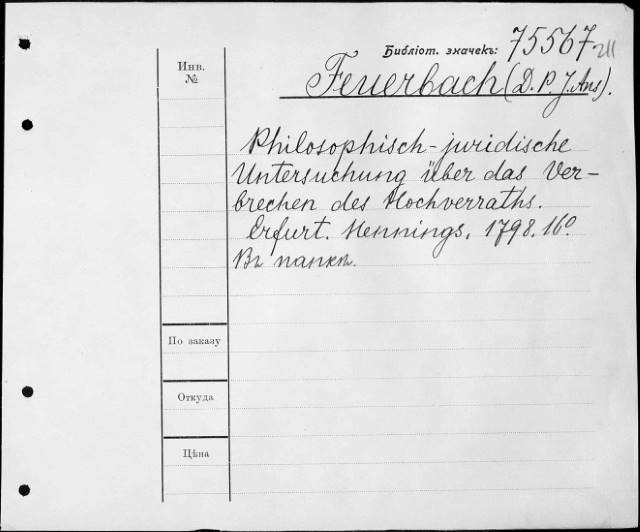 Библіот. значекъ: 75567
Инв.
№
Feuerbach (D. P. J. Ans).
Philosophisch-juridische
Untersuchung über das Ver-
brechen des Hochverraths.
Erfurt. Hennings. 1798. 16º
Въ папкѣ.
По заказу
Откуда
Цѣна